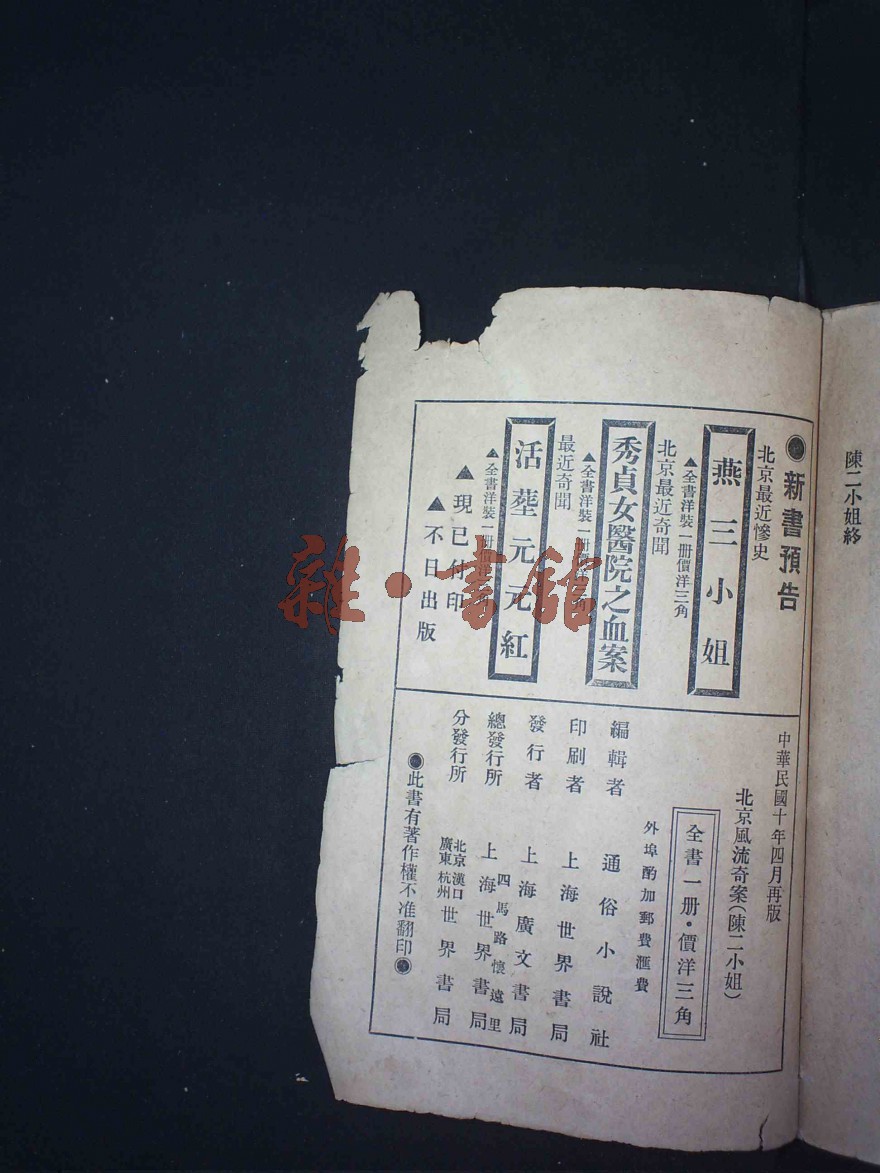 陳二小姐終
●新書預告
北京最近慘史
燕三小姐
▲全書洋裝一册價洋三角
北京最近奇聞
秀貞女醫院之血案
▲全書洋裝一册價洋
最近奇聞
活葬元元紅
▲全書洋裝一册價洋
▲現已付印
▲不日出版
中華民國十年四月再版
北京風流奇案(陳二小姐)
全書一册·價洋三角
外埠酌加郵費滙費
編輯者 通俗小說社
印刷者 上海世界書局
發行者 上海廣文書局
四馬路懷遠里
總發行所 上海世界書局
分發行所 北京漢口 廣東杭州 世界書局
●此書有著作權不准翻印●
雜·書館